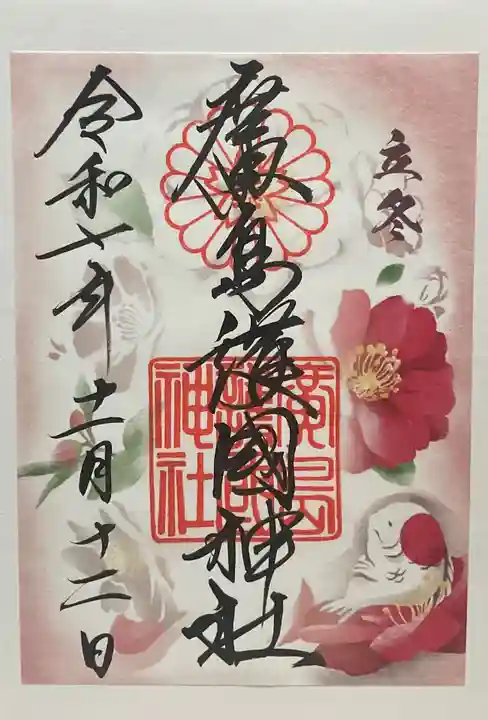 立冬
廣島護國神社
廣島護國神社
令和七年十一月十二日